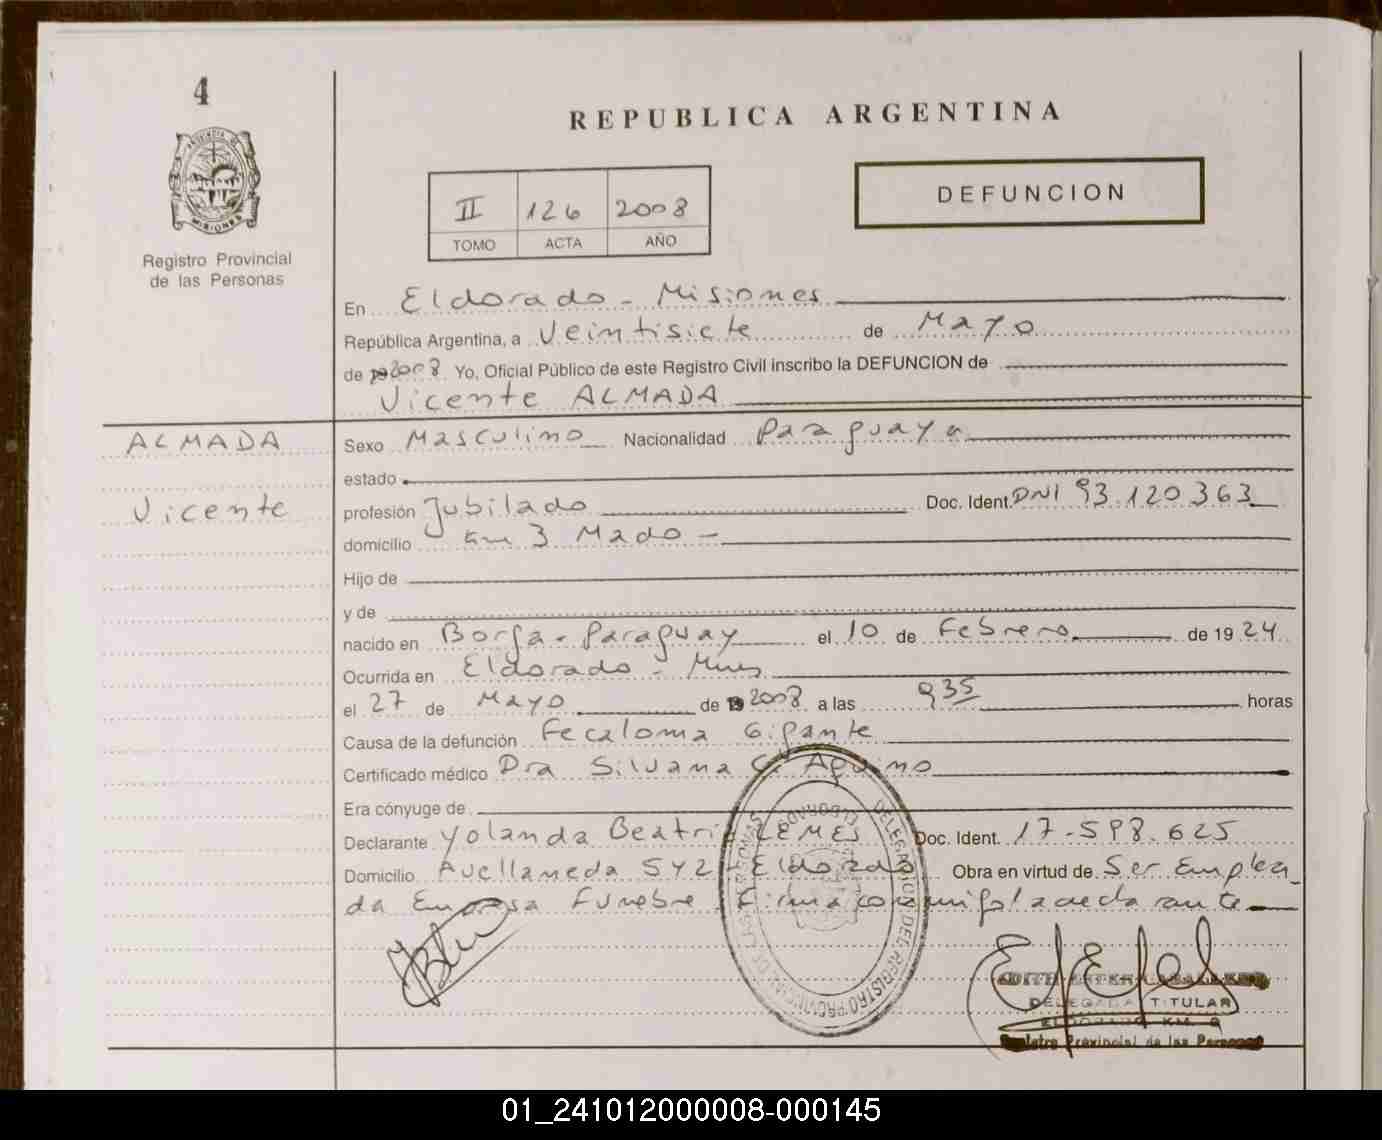 4
PROVINCIA DE
MISIONES
Registro Provincial
de las Personas
REPUBLICA ARGENTINA
II 126 2008
TOMO ACTA AÑO
DEFUNCION
En Eldorado - Misiones
República Argentina, a Veintisiete de Mayo
de 2008 Yo, Oficial Público de este Registro Civil inscribo la DEFUNCION de
Vicente ALMADA
ALMADA
Vicente
Sexo Masculino Nacionalidad Paraguaya
estado
profesión Jubilado Doc. Ident. DNI 93.120363
domicilio Km 3 Mado -
Hijo de
y de
nacido en Borja - Paraguay el 10 de Febrero de 1924
Ocurrida en Eldorado - Mnes
el 27 de Mayo de 2008 a las 935 horas
Causa de la defunción Fecaloma Gigante
Certificado médico Dra Silvana C. Aquino
Era cónyuge de
Declarante Yolanda Beatriz LEMES Doc. Ident. 17-598.625
Domicilio Avellaneda 542 - Eldorado Obra en virtud de Ser Emplea
da Empresa Funebre Firma conmigo la declarante
DELEGACION DEL REGISTRO PROVINCIAL DE LAS PERSONAS
ELDORADO
DELEGADA TITULAR
ELDORADO KM. 9
Registro Provincial de las Personas
01_241012000008-000145